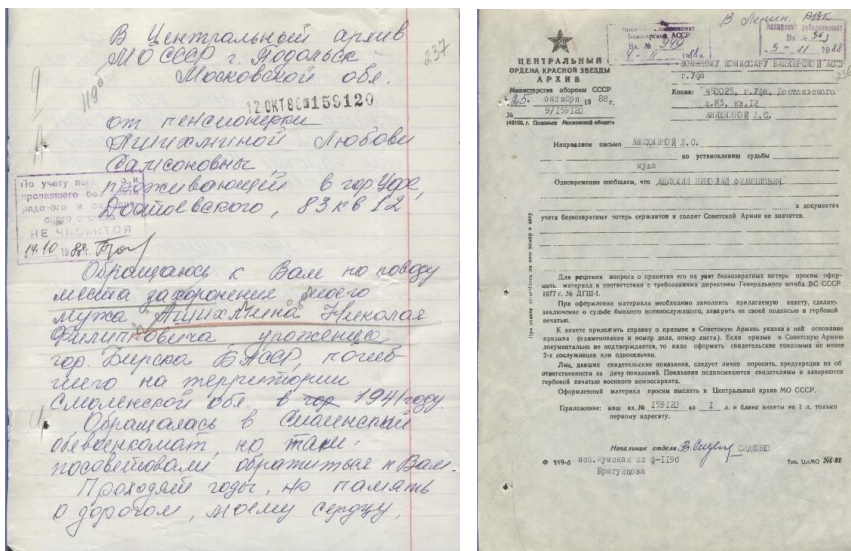 В Центральный архив
МО СССР г. Подольск
Московской обл.
237
119
12 ОКТ 88 159120
от пенсионерки
Апихминой Любови
Самсоновны
проживающей в гор. Уфе,
Достоевского, 83 кв 12
По учету
пропавшего без
рядового и
НЕ ЧИСЛИТСЯ
14.10 1988г.
Обращаюсь к Вам по поводу
места захоронения моего
мужа Апихмина Николая
Филипповича уроженца
гор. Бирска БАССР, погиб-
шего на территории
Смоленской обл. в 1941 году.
Обращалась в Смоленский
облвоенкомат, но там
посоветовали обратиться к Вам.
Проходят годы, но память
о дорогом, моему сердцу,
В Ленин. РВК
АССР
Вх. №
4 - II - 1988
Вх №
9 - 11 1988
ЦЕНТРАЛЬНЫЙ
ОРДЕНА КРАСНОЙ ЗВЕЗДЫ
АРХИВ
Министерства обороны СССР
"25" октября 1988 г.
№ 9/159120
142100, г. Подольск Московской области
ВОЕННОМУ КОМИССАРУ БАШКИРСКОЙ АССР
г.Уфа
Копия: 450025, г.Уфа, Достоевского
д.83, кв.12
АПИХМИНОЙ Л.С.
Направляем письмо АПИХМИНОЙ Л.С.
по установлению судьбы
мужа
Одновременно сообщаем, что АПИХМИН НИКОЛАЙ ФИЛИППОВИЧ
в документах
учета безвозвратных потерь сержантов и солдат Советской Армии не значится.
Для решения вопроса о принятии его на учет безвозвратных потерь просим офор-
мить материал в соответствии с требованиями директивы Генерального штаба ВС СССР
1977 г. № ДГШ-1.
При оформлении материала необходимо заполнить прилагаемую анкету, сделать
заключение о судьбе бывшего военнослужащего, заверить ее своей подписью и гербовой
печатью.
К анкете приложить справку о призыве в Советскую Армию, указав в ней основание
призыва (наименование и номер дела, номер листа). Если призыв в Советскую Армию
документально не подтверждается, то надо оформить свидетельские показания не менее
2-х сослуживцев или односельчан.
Лиц, давших свидетельские показания, следует лично опросить, предупредив их об
ответственности за дачу показаний. Показания подписываются свидетелями и заверяются
гербовой печатью военного комиссариата.
Оформленный материал просим выслать в Центральный архив МО СССР.
Приложение: наш вх.№ 159120 на 1 л. и бланк анкеты на 1 л. только
первому адресату.
Начальник отдела
Ф 119-б
исп.Чумская
Брагунцова
Тип. ЦАМО